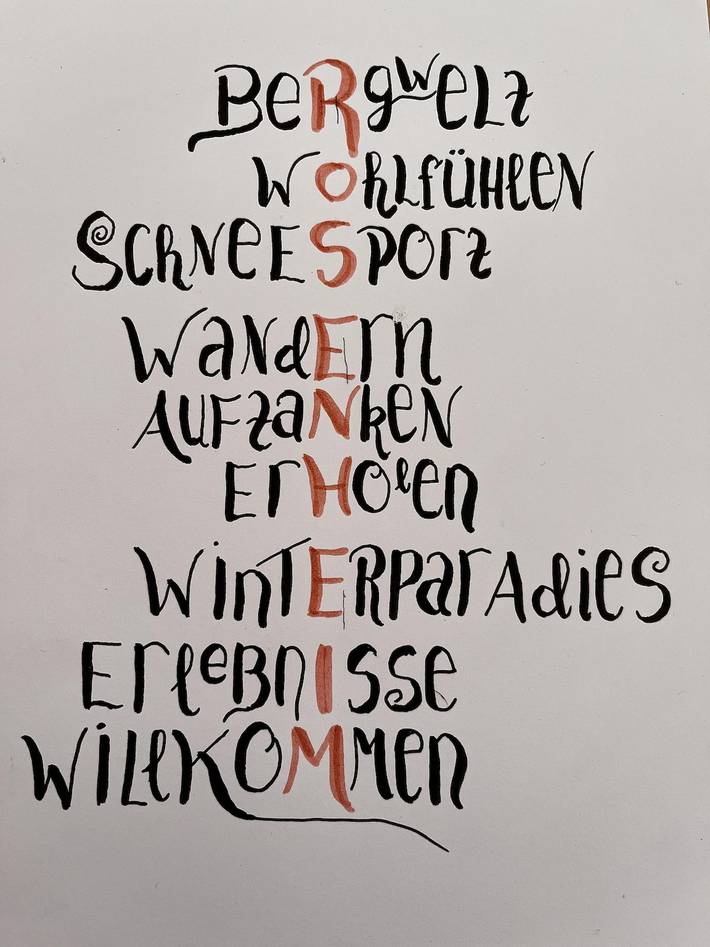 BeRgwelt
WOhlfühlen
SchneeSport
WandErn
AuftaNken
ErHolen
WintErparadies
ErlebnIsse
WillkoMmen